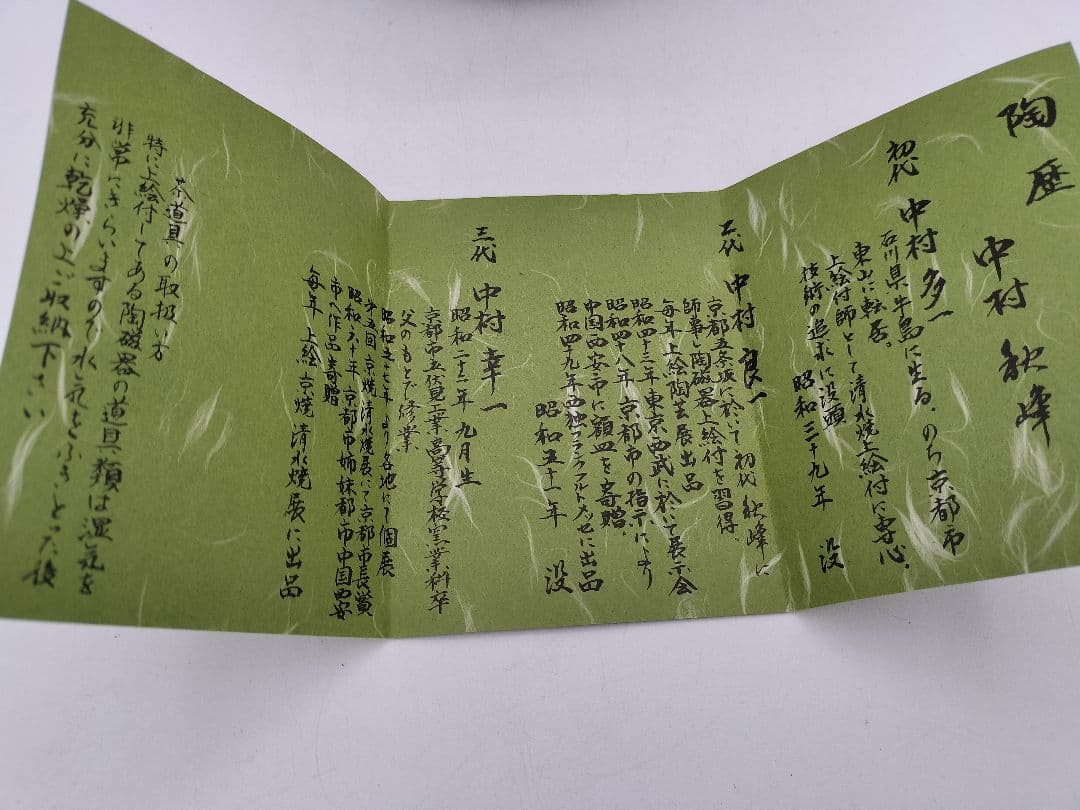 陶歴
中村秋峰
初代 中村多一
石川県牛島に生る。のち京都市
東山に転居。
上絵付師として清水焼上絵付に専心。
技術の追求に没頭
昭和三十九年 没
二代 中村良一
京都五条坂に於いて初代秋峰に
師事し陶磁器上絵付を習得。
毎年上絵陶芸展出品
昭和四十三年東京西武に於いて展示会
昭和四十八年京都市の指示により
中国西安市に額皿を寄贈。
昭和四十九年西独フランクフルトメッセに出品
昭和五十一年 没
三代 中村幸一
昭和二十二年 九月生
京都市立伏見工業高等学校窯業科卒
父のもとで修業
昭和五十七年より各地にて個展
第五回京焼清水焼展にて京都市長賞
昭和六十年京都市姉妹都市中国西安
市へ作品寄贈
毎年 上絵 京焼 清水焼展に出品
茶道具の取扱い方
特に上絵付してある陶磁器の道具類は湿気を
非常にきらいますので水気をふきとった後
充分に乾燥の上ご収納下さい